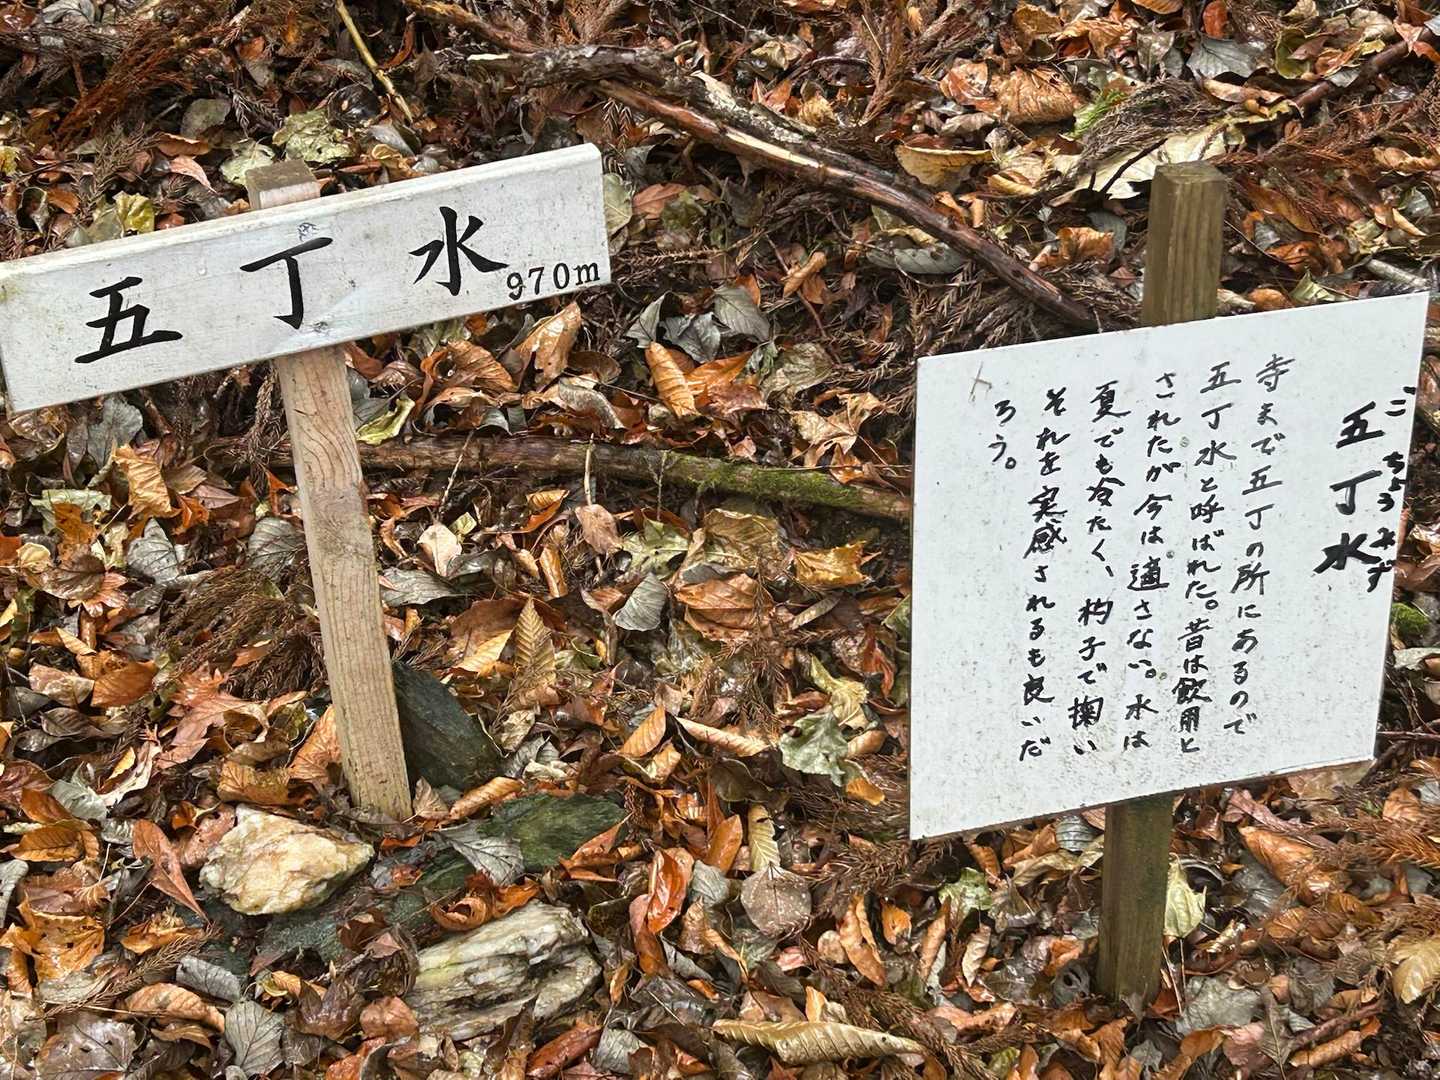 五丁水
970m
五丁水
ごちょうみず
寺まで五丁の所にあるので
五丁水と呼ばれた。昔は飲用と
されたが今は適さない。水は
夏でも冷たく、杓子で掬い
それを実感されるも良いだ
ろう。